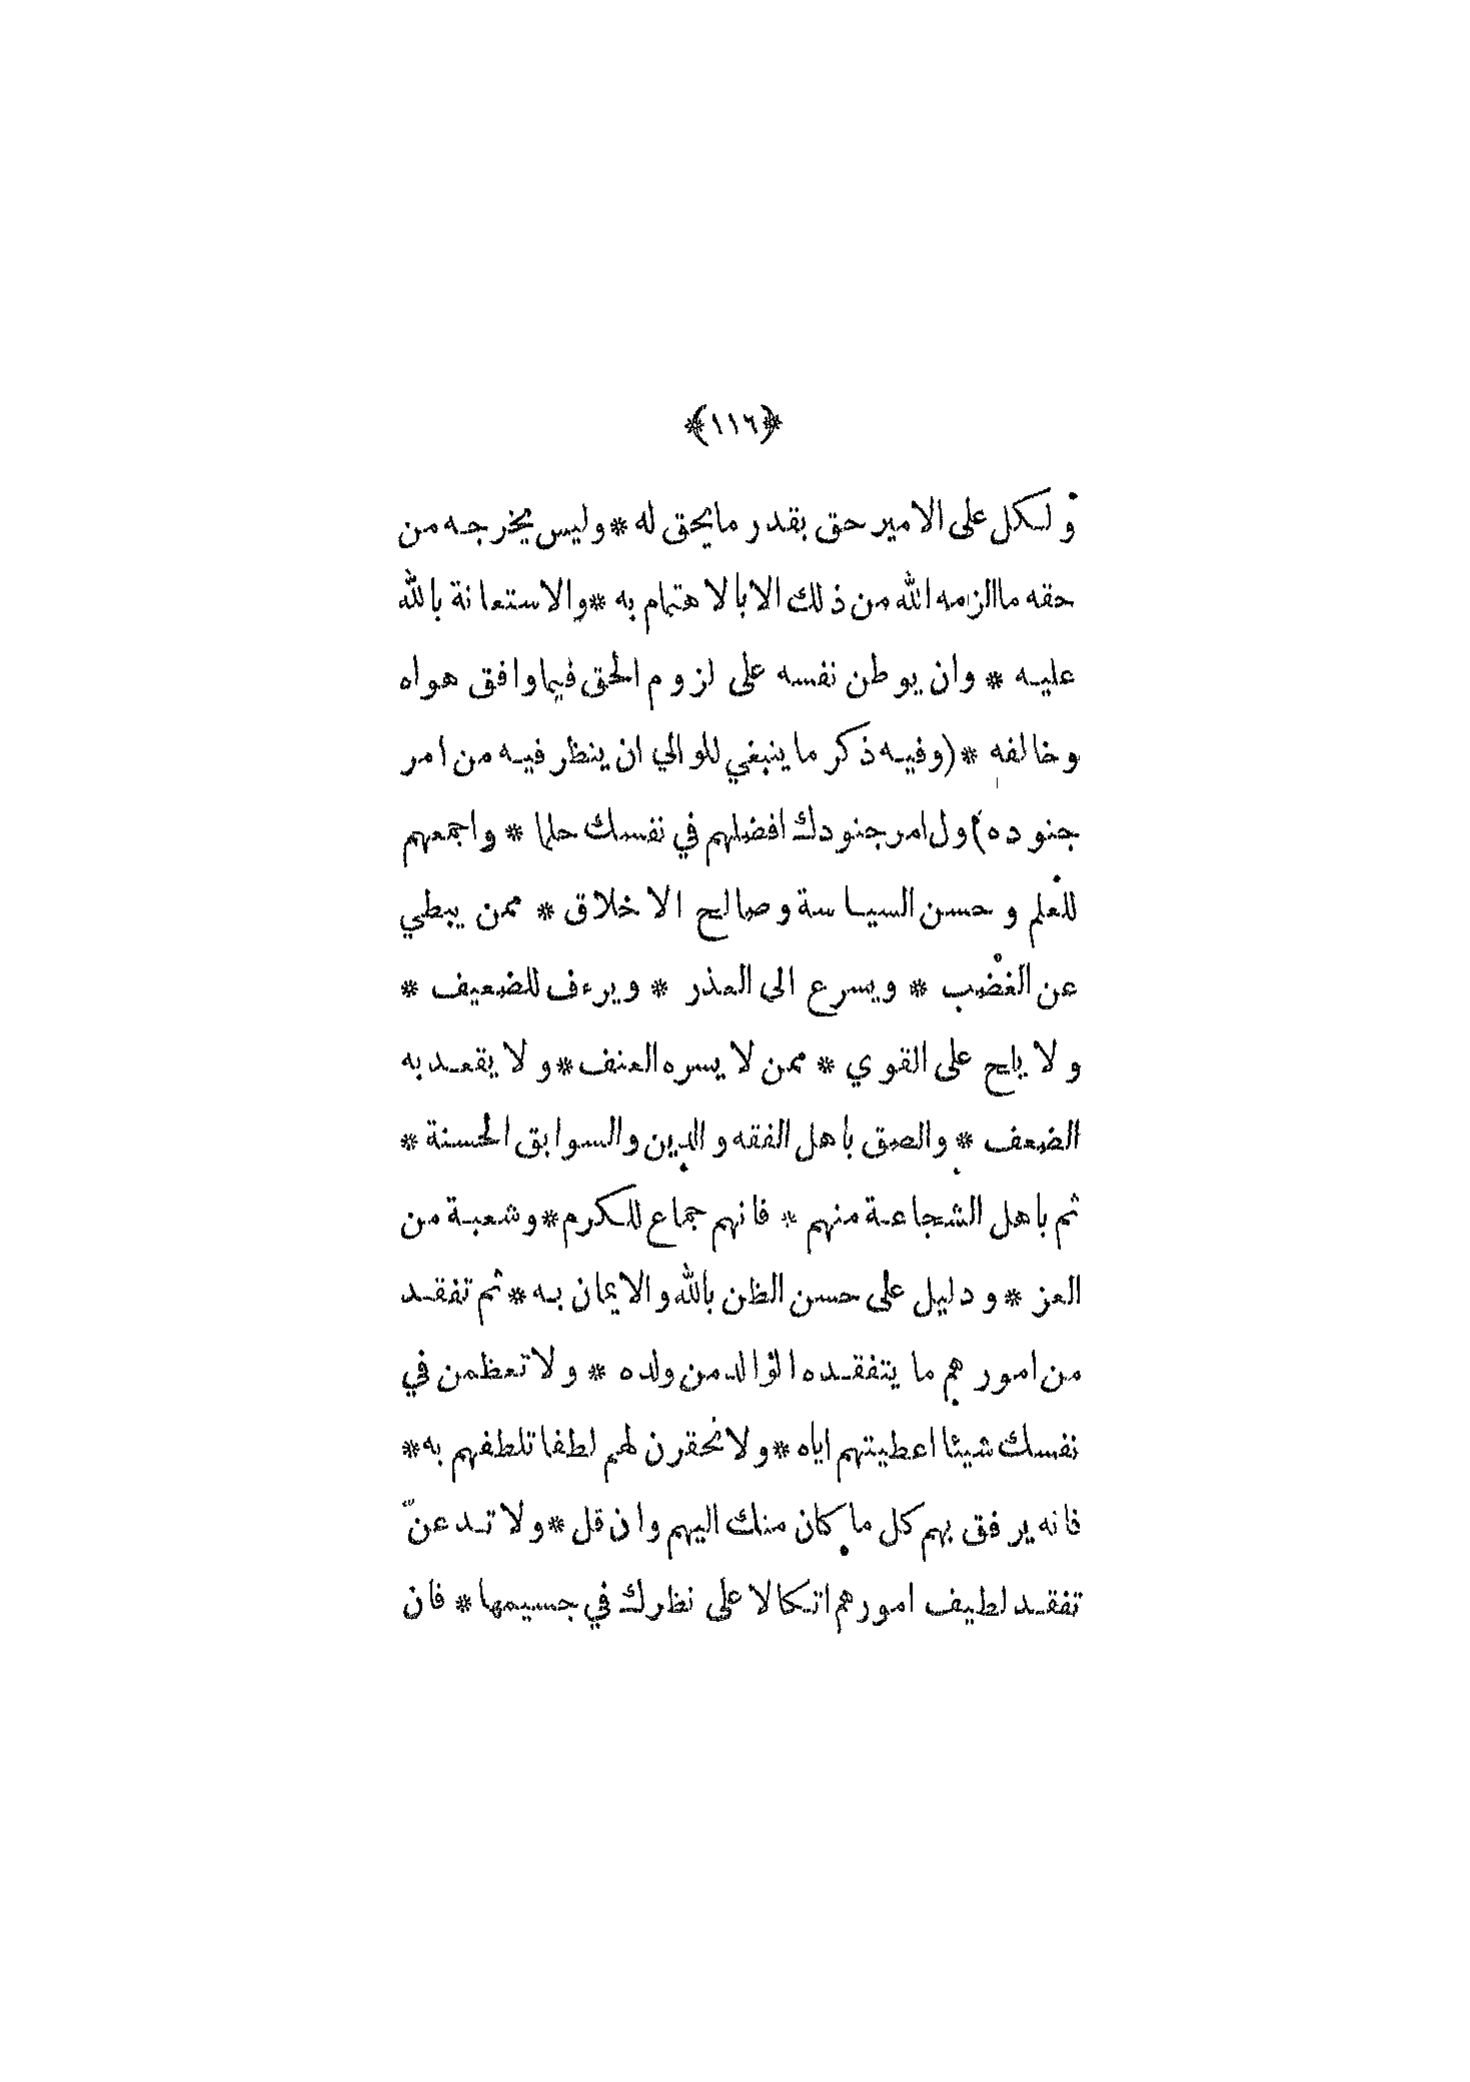 ﴿١١٦﴾
ولكل على الامير حق بقدر مايحق له * وليس يخرجه من
حقه ماالزمه الله من ذلك الابالاهتمام به * والاستعانة بالله
عليه * وان يوطن نفسه على لزوم الحق فيماوافق هواه
وخالفه * (وفيه ذكر ما ينبغي للوالي ان ينظر فيه من امر
جنوده) ول امر جنودك افضلهم في نفسك حلما * واجمعهم
للعلم وحسن السياسة وصالح الاخلاق * ممن يبطي
عن الغضب * ويسرع الى العذر * ويرءف للضعيف *
ولا يلح على القوي * ممن لا يسره العنف * ولا يقعد به
الضعف * والصق باهل الفقه والدين والسوابق الحسنة *
ثم باهل الشجاعة منهم * فانهم جماع للكرم * وشعبة من
العز * ودليل على حسن الظن بالله والايمان به * ثم تفقد
من امورهم ما يتفقده الوالد من ولده * ولا تعظمن في
نفسك شيئا اعطيتهم اياه * ولا تحقرن لهم لطفا تلطفهم به *
فانه يرفق بهم كل ما كان منك اليهم وان قل * ولا تدعنّ
تفقد لطيف امورهم اتكالا على نظرك في جسيمها * فان